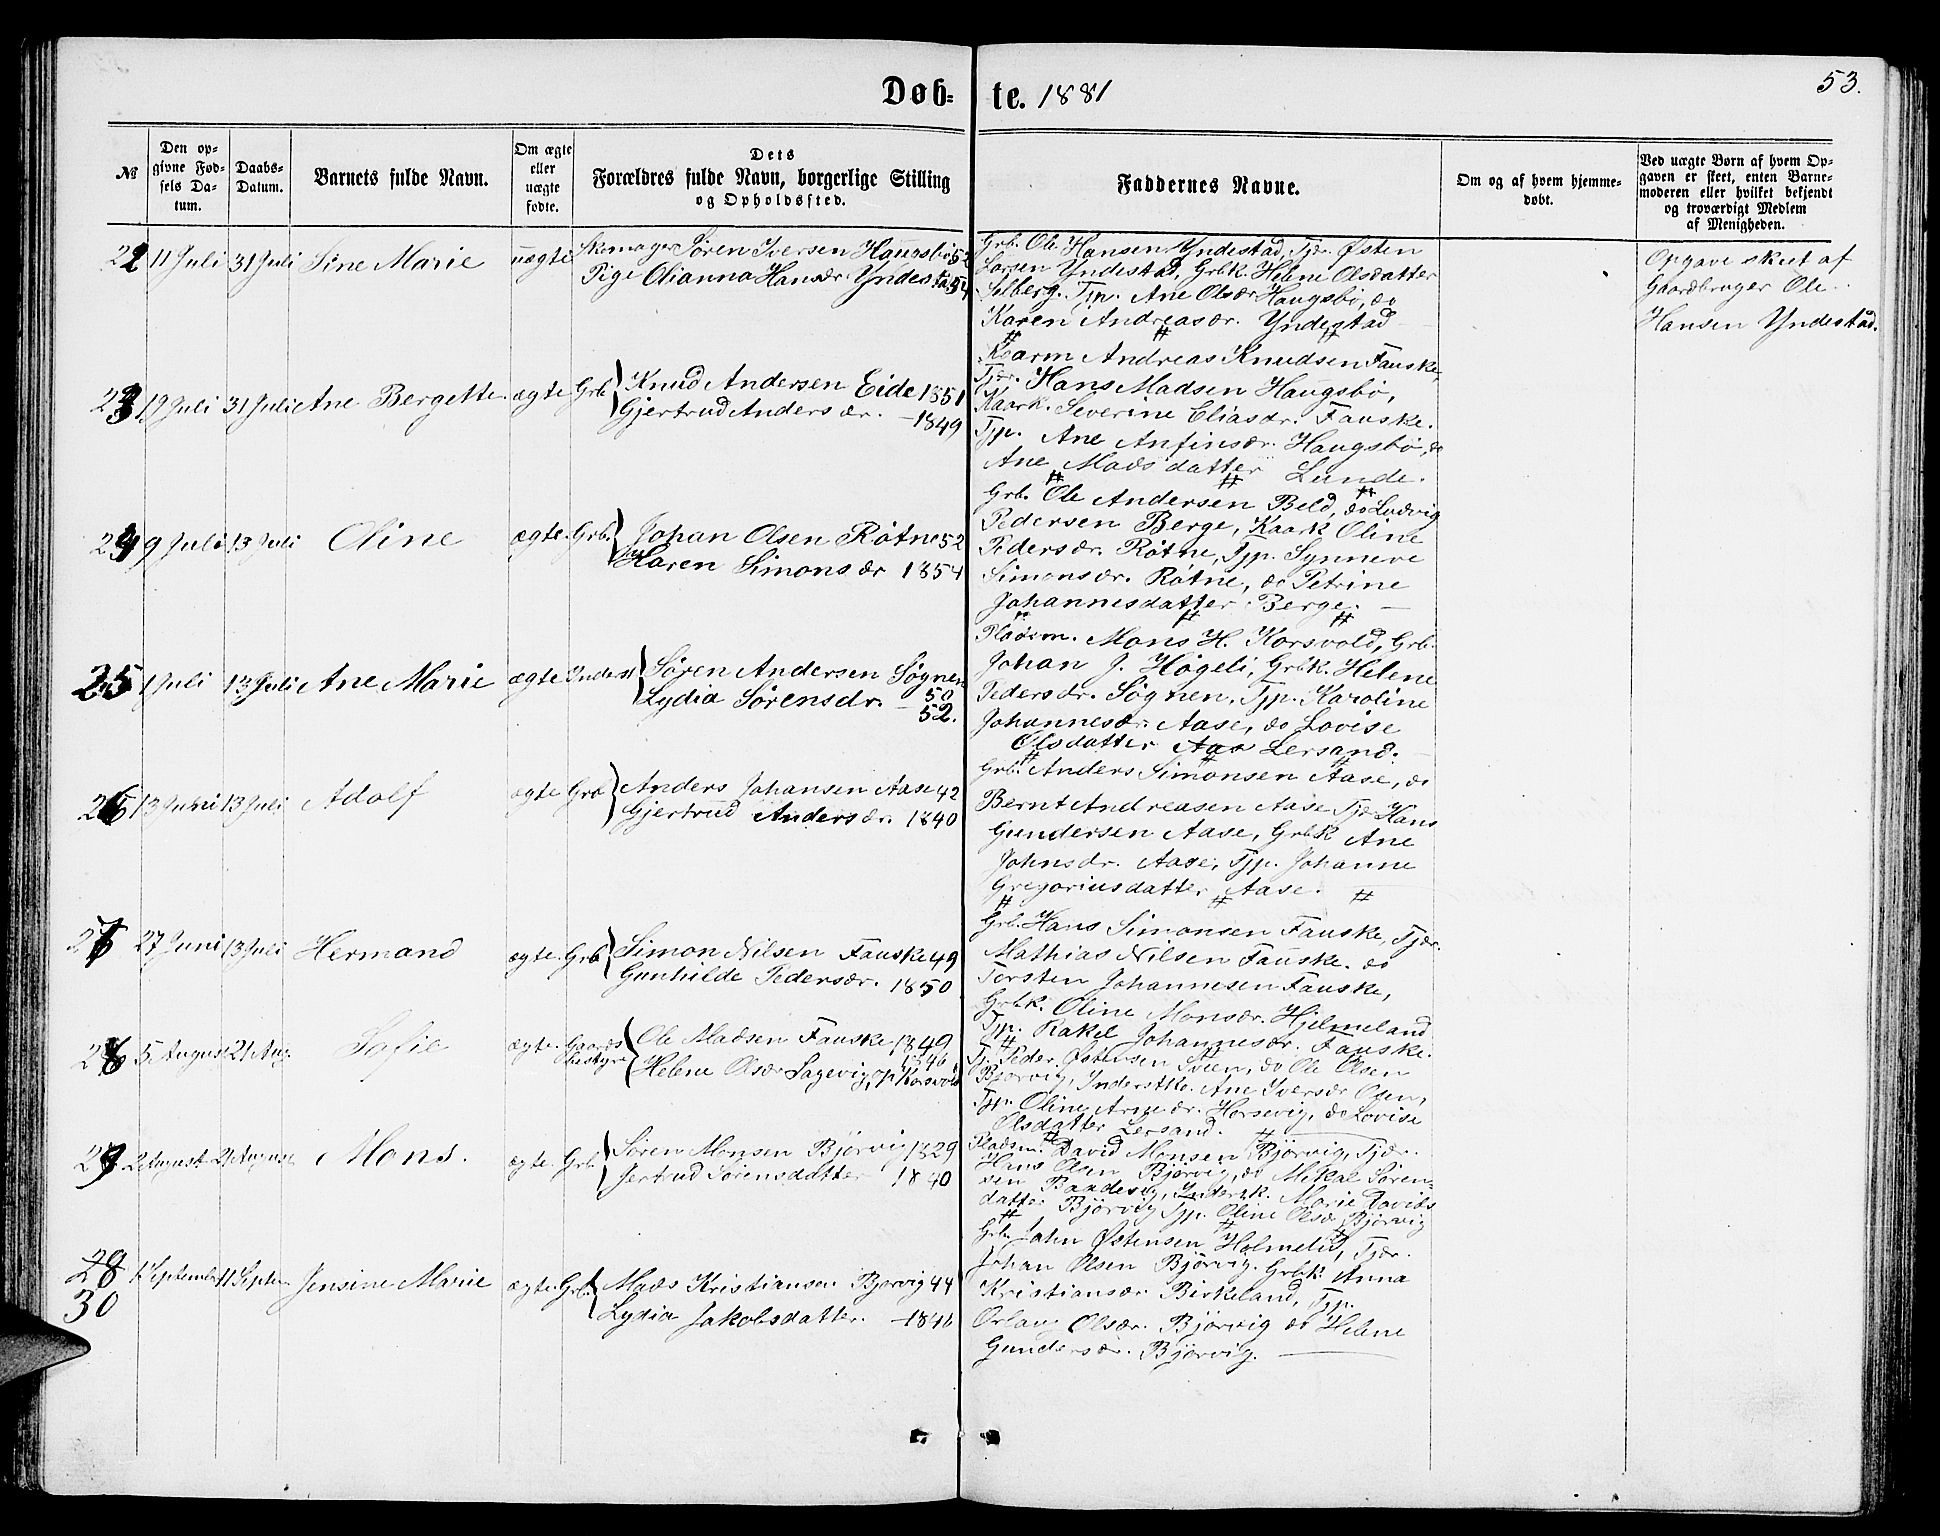 53.
Døb- te. 1881
№
Den op-
givne Fød-
sels Da-
tum.
Daabs-
Datum.
Barnets fulde Navn.
Om ægte
eller
uægte
fødte.
Dets
Forældres fulde Navn, borgerlige Stilling
og Opholdssted.
Faddernes Navne.
Om og af hvem hjemme-
døbt.
Ved uægte Børn af hvem Op-
gaven er skeet, enten Barne-
moderen eller hvilket bekjendt
og troværdigt Medlem
af Menigheden.
22 11 Juli 31 Juli Sine Marie uægte Skomager Søren Iversen Haugsbø
Pige Olianna Hansdr. Yndestad 54
Grb. Ole Hansen Yndestad, Tjr. Østen
Larsen Yndestad, Grbk. Helene Olsdatter
Selberg. Tjp. Ane Olsdr Haugsbø, do
Karen Andreasdr. Yndestad
Opgave skeet af
Gaardbruger Ole
Hansen Yndestad.
23 19 Juli 31 Juli Ane Bergette ægte Grb Knud Andersen Eide 1851
Gjertrud Andersdr. - 1849
Kaarm Andreas Knudsen Fauske,
Tjr. Hans Madsen Haugsbø,
Kaark. Severine Eliasdr. Fauske.
Tjp. Ane Anfinsdr. Haugsbø, do
Ane Madsdatter Lunde.
24 9 Juli 13 Juli Oline ægte Grb. Johan Olsen Røtne 52
Karen Simonsdr 1854
Grb. Ole Andersen Beld, do Ludvig
Pedersen Berge, Kaark Oline
Pedersdr. Røtne, Tjp. Synneve
Simonsdr. Røtne, do Petrine
Johannesdatter Berge.
25 1 Juli 13 Juli Ane Marie ægte Inderst Søren Andersen Søgnen
50
Lydia Sørensdr. - 52.
Pladsm. Mons H. Korsvold, Grb.
Johan J. Høgeli, Grbk. Helene
Pedersdr. Søgnen, Tjp. Karoline
Johannesdr. Aase, do Lovise
Olsdatter Aas Lersand.
26 13 Juni 13 Juli Adolf ægte Grb Anders Johansen Aase 42
Gjertrud Andersdr. 1840
Grb. Anders Simonsen Aase, do
Bernt Andreasen Aase Tjr Hans
Gundersen Aase, Grbk Ane
Johnsdr. Aase, Tjp. Johanne
Gregoriusdatter Aase.
27 27 Juni 13 Juli Hermand ægte. Grb Simon Nilsen Fauske 49
Gunhilde Pedersdr. 1850
Grb. Hans Simonsen Fauske, Tjr.
Mathias Nilsen Fauske. do
Torsten Johannesen Fauske,
Grbk. Oline Monsdr. Hjelmeland
Tjp. Rakel Johannesdr. Fauske.
28 5 August 21 Aug. Sofie ægte. Gaards
bestyr Ole Madsen Fauske 1849
1846
Helene Olsdr Sagevig, p. Korsvold
Tj. Peder Østensen Svien, do Ole Olsen
Bjørvig, Inderstko. Ane Iversdr Osen,
Tjp. Oline Arnedr. Horsevig, do Lovise
Olsdatter Lersand.
29 2 August 21 August Mons. ægte. Grb. Søren Monsen Bjørvig 1829
Jertrud Sørensdatter 1840
Pladsm. David Monsen Bjørvig, Tjr.
Hans Olsen Bjørvig, do Mikal Søren-
sen Bondevig, Inderstk. Marie Davids
datter Bjørvig Tjp. Oline Olsdr Bjørvig
28
30 1 September 11 Septem Jensine Marie ægte. Grb. Mads Kristiansen Bjørvig 44
Lydia Jakobsdatter. - 1846
Grb. John Østensen Holmelid, Tjr.
Johan Olsen Bjørvig. Grbk. Anna
Kristiansdr. Birkeland, Tjp.
Ørlaug Olsdr. Bjørvig do Helene
Gundersdr. Bjørvig.